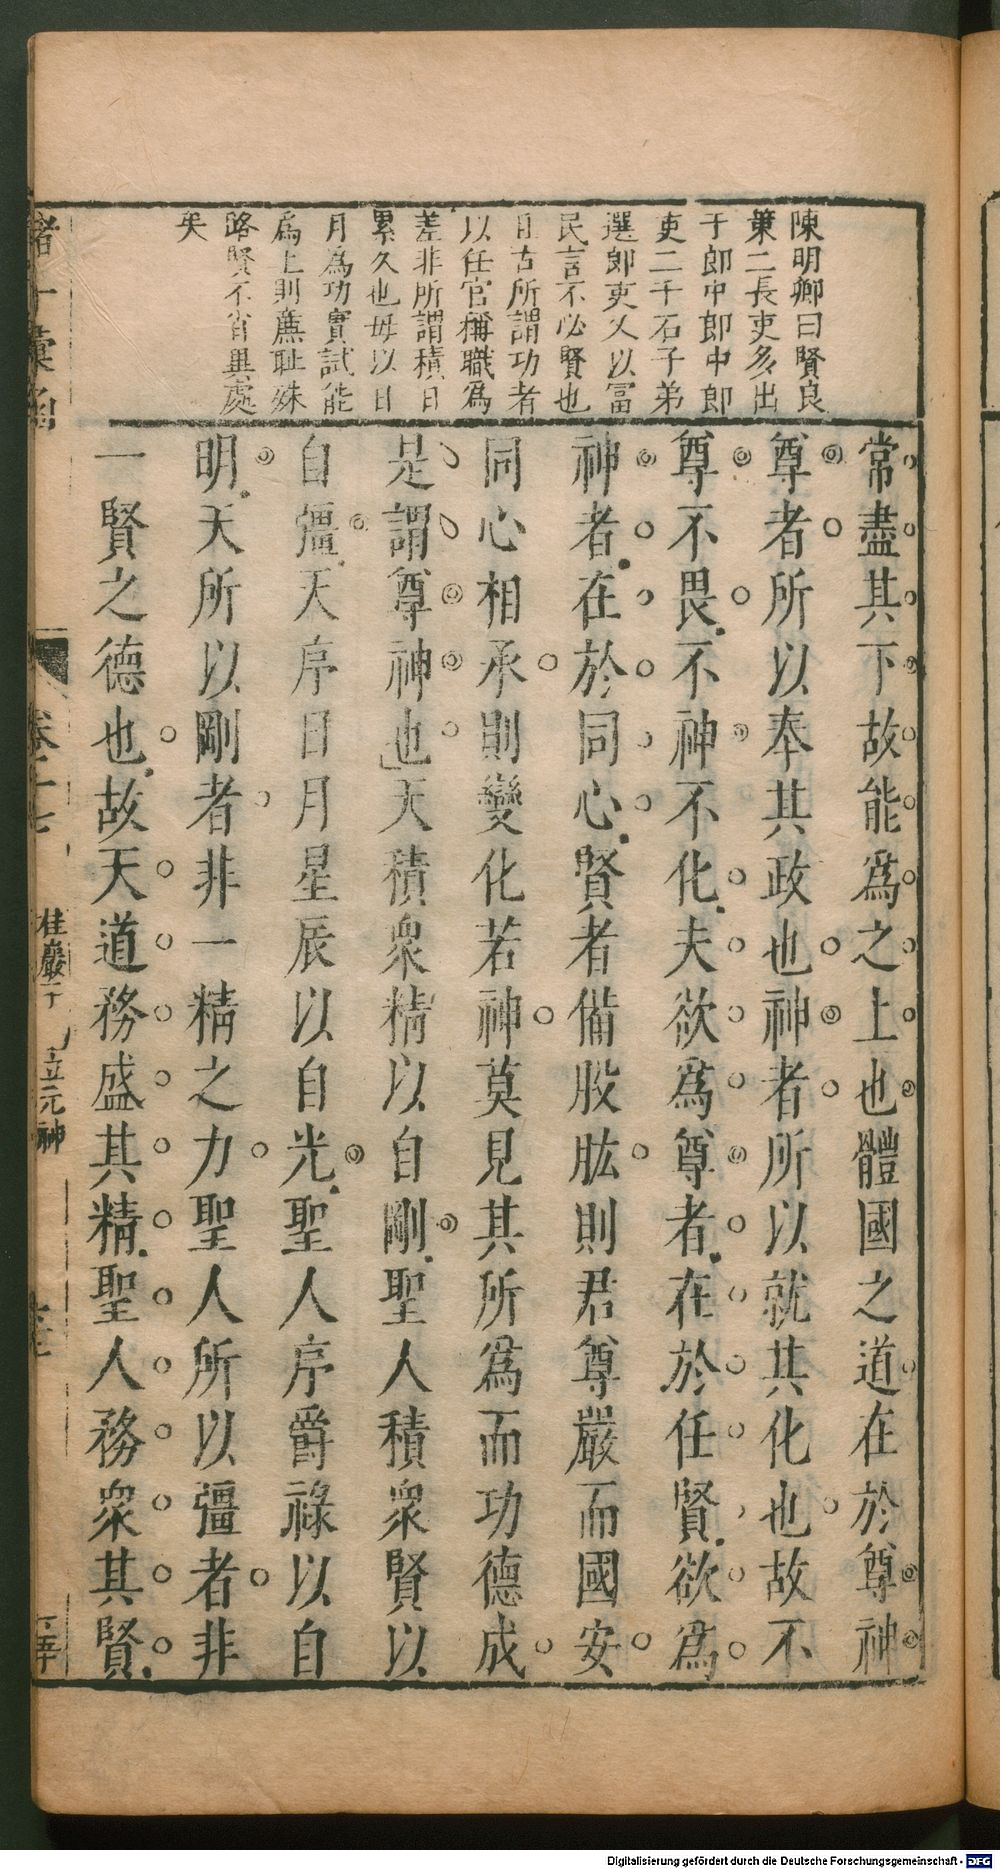 陳明卿曰賢良
策二長吏多出
于郎中郎中郎
吏二千石子弟
選郎吏又以冨
民言不必賢也
且古所謂功者
以任官稱職爲
差非所謂積日
累久也毋以日
月爲功實試能
爲上則廉耻殊
路賢不肖異處
矣
常盡其下故能爲之上也體國之道在於尊神
尊者所以奉其政也神者所以就其化也故不
尊不畏不神不化夫欲爲尊者在於任賢欲爲
神者在於同心賢者備股肱則君尊嚴而國安
同心相承則變化若神莫見其所爲而功德成
是謂尊神也天積衆精以自剛聖人積衆賢以
自彊天序日月星辰以自光聖人序爵祿以自
明天所以剛者非一精之力聖人所以彊者非
一賢之德也故天道務盛其精聖人務衆其賢
諸子彙
卷十七
桂巖子 立元神
Digitalisierung gefördert durch die Deutsche Forschungsgemeinschaft - DFG